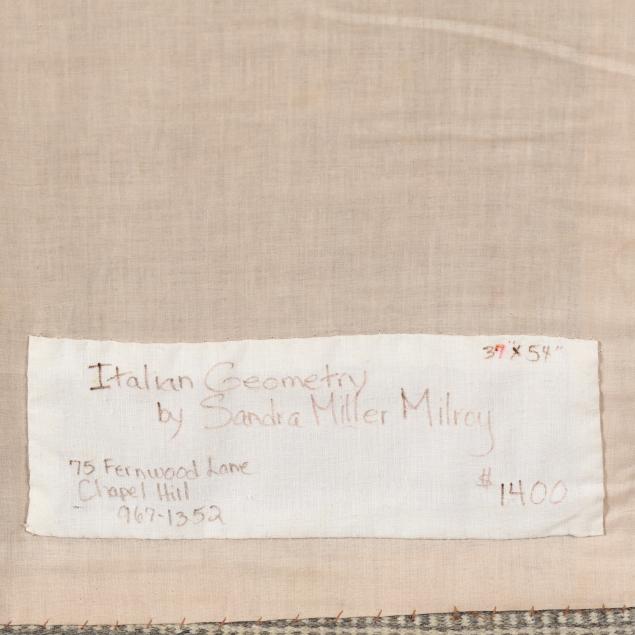 37" x 54"
Italian Geometry
by Sandra Miller Milroy
75 Fernwood Lane
Chapel Hill
967-1352
$1400